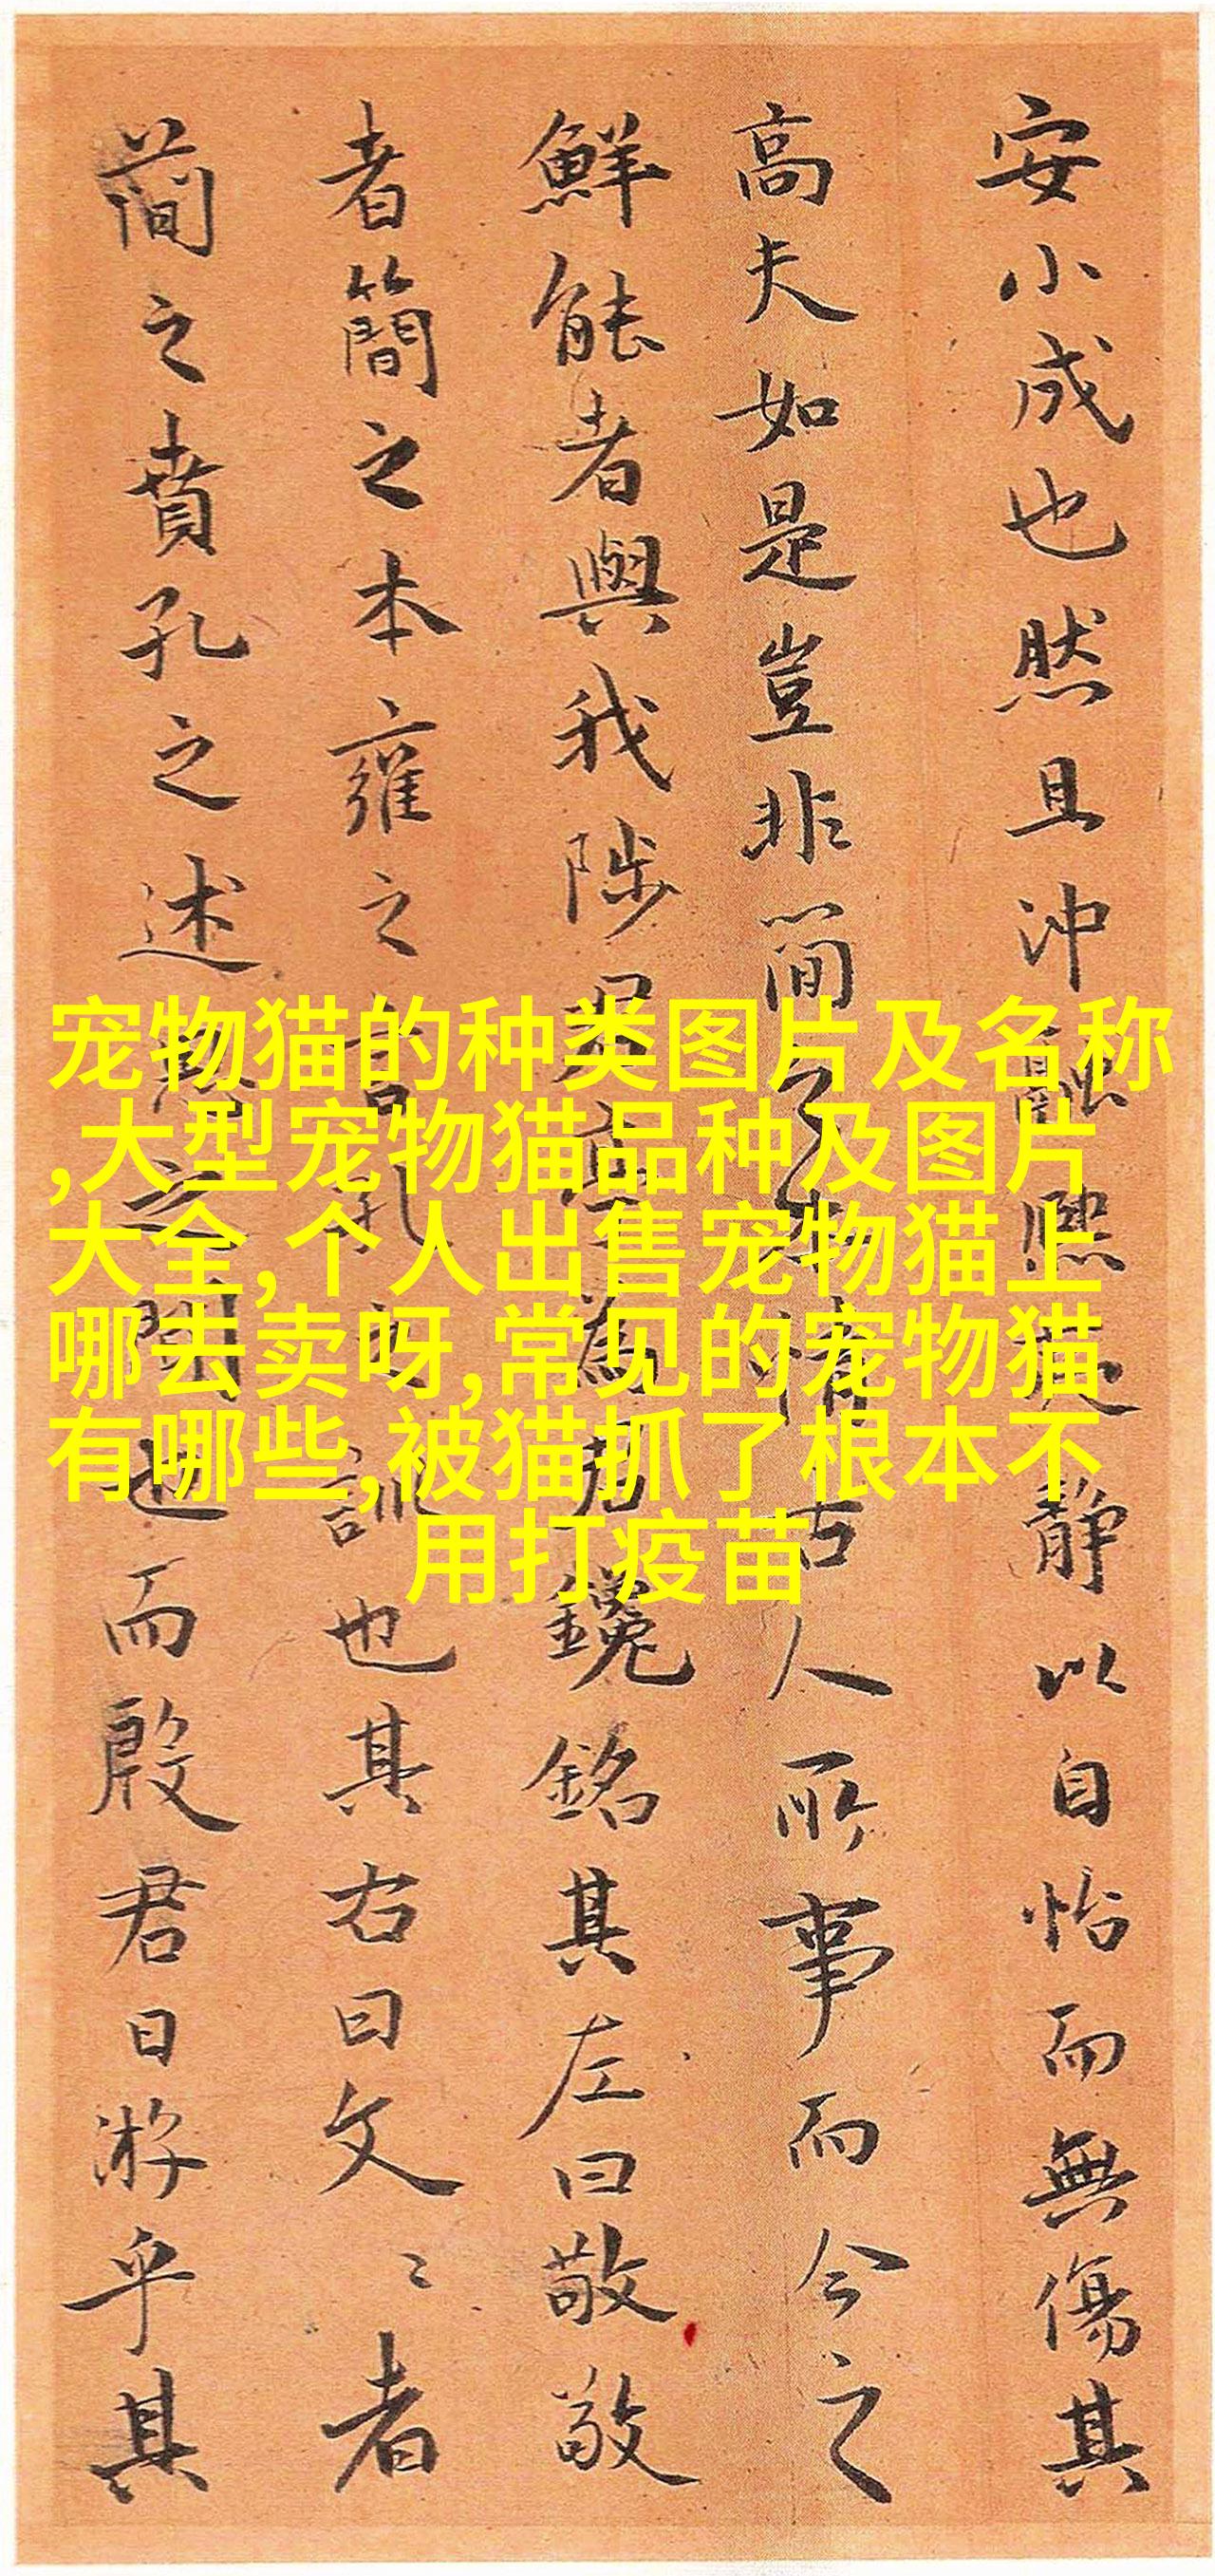 安小成也然且沖融熙夷静以自怡而無傷其
高夫如是豈非簡之情古人所事而今之
鮮能者與我陟君高為君鑱銘其左曰敬敬
者簡之本雍之言孔之訓也其右曰文〻者
蕳之賁孔之述之間也而殷君日游乎其
宠物猫的种类图片及名称
,大型宠物猫品种及图片
大全,个人出售宠物猫上
哪去卖呀,常见的宠物猫
有哪些,被猫抓了根本不
用打疫苗